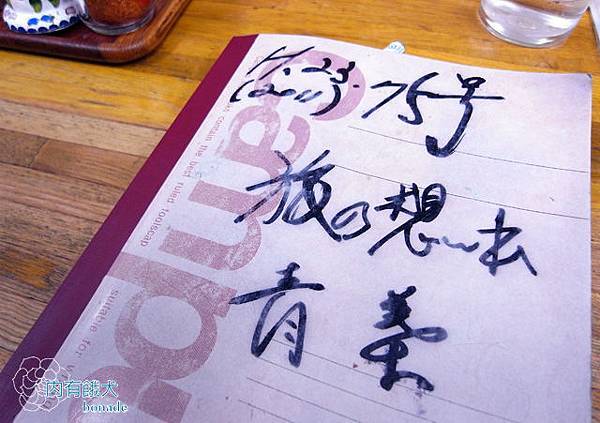 H.23.
(2011) 75号
旅の想い出
青葉
Campus
contain the best ruled foolscap
suitable for
内有餓犬
bonade